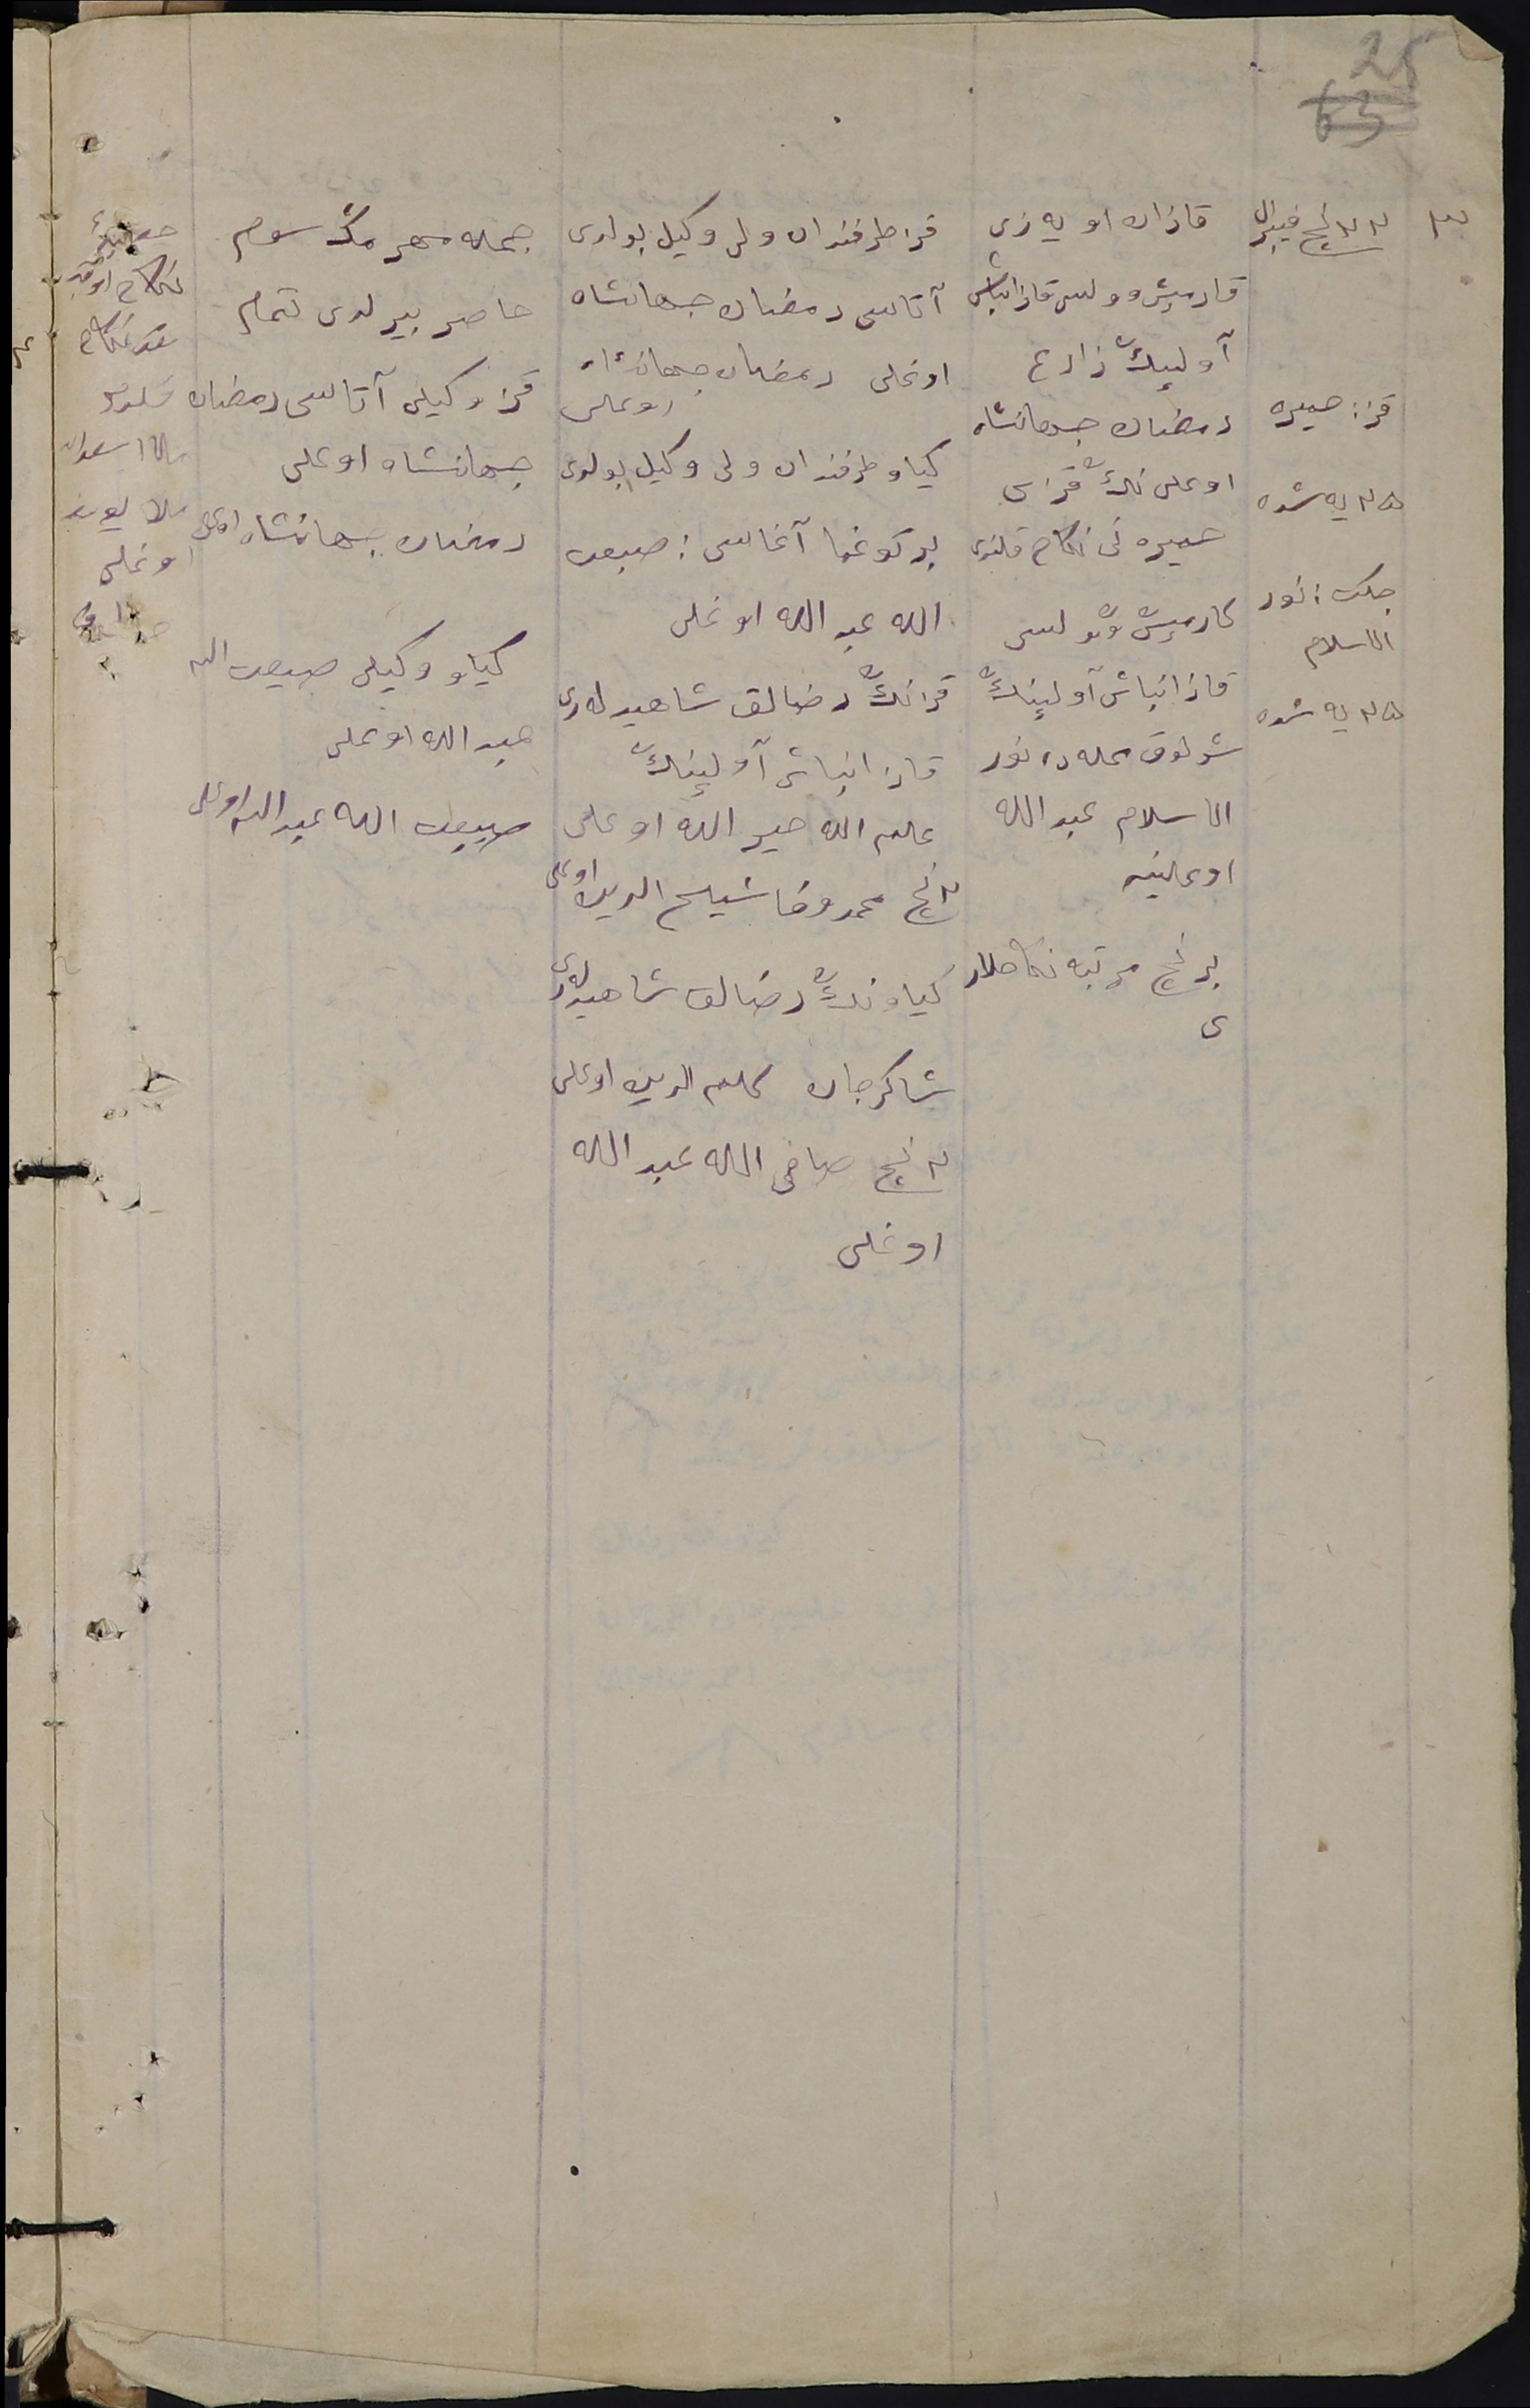 25
63
۲۲ نچی فیبرال
قز: حمیره
۲۵ یه شده
نور
الاسلام
۲۵ یه شده
قازان اویه زی
قارمیش وولسی قازانباش
آولینڭ زارع
رمضان جهانشاه
اوغلی نڭ قزی
حمیره نی نکاح قلندی
کارمیش وولسی
قازانباش آولینڭ
شولوق محله ده نور
الاسلام عبد الله
اوغلینه
برنچی مرتبه نکاحلار
ی
قز طرفندان ولی وکیل بولدی
آتاسی رمضان جهانشاه
اوغلی رمضان جهانشاه
اوغلی
کیاو طرفندان ولی وکیل بولدی
بر توغما آغاسی: حبیب
الله عبد الله اوغلی
قزنڭ رضالق شاهیدلری
قازانباش آولینڭ
علیم الله خیر الله اوغلی
۲ نچی محمد وفا شیخ الدین اوغلی
کیاونڭ رضالق شاهیدلری
شاکرجان علیم الدین اوغلی
۲ نچی صافی الله عبد الله
اوغلی
جمله مهر مڭ سوم
حاضر بیرلدی تمام
قز وکیلی آتاسی رمضان
جهانشاه اوغلی
رمضان جهانشاه اوغلی
کیاو وکیلی حبیب الله
عبد الله اوغلی
حبیب الله عبد الله اوغلی
نکاح اوقوب
عقد نکاح
قلدم
ملا
اوغلی